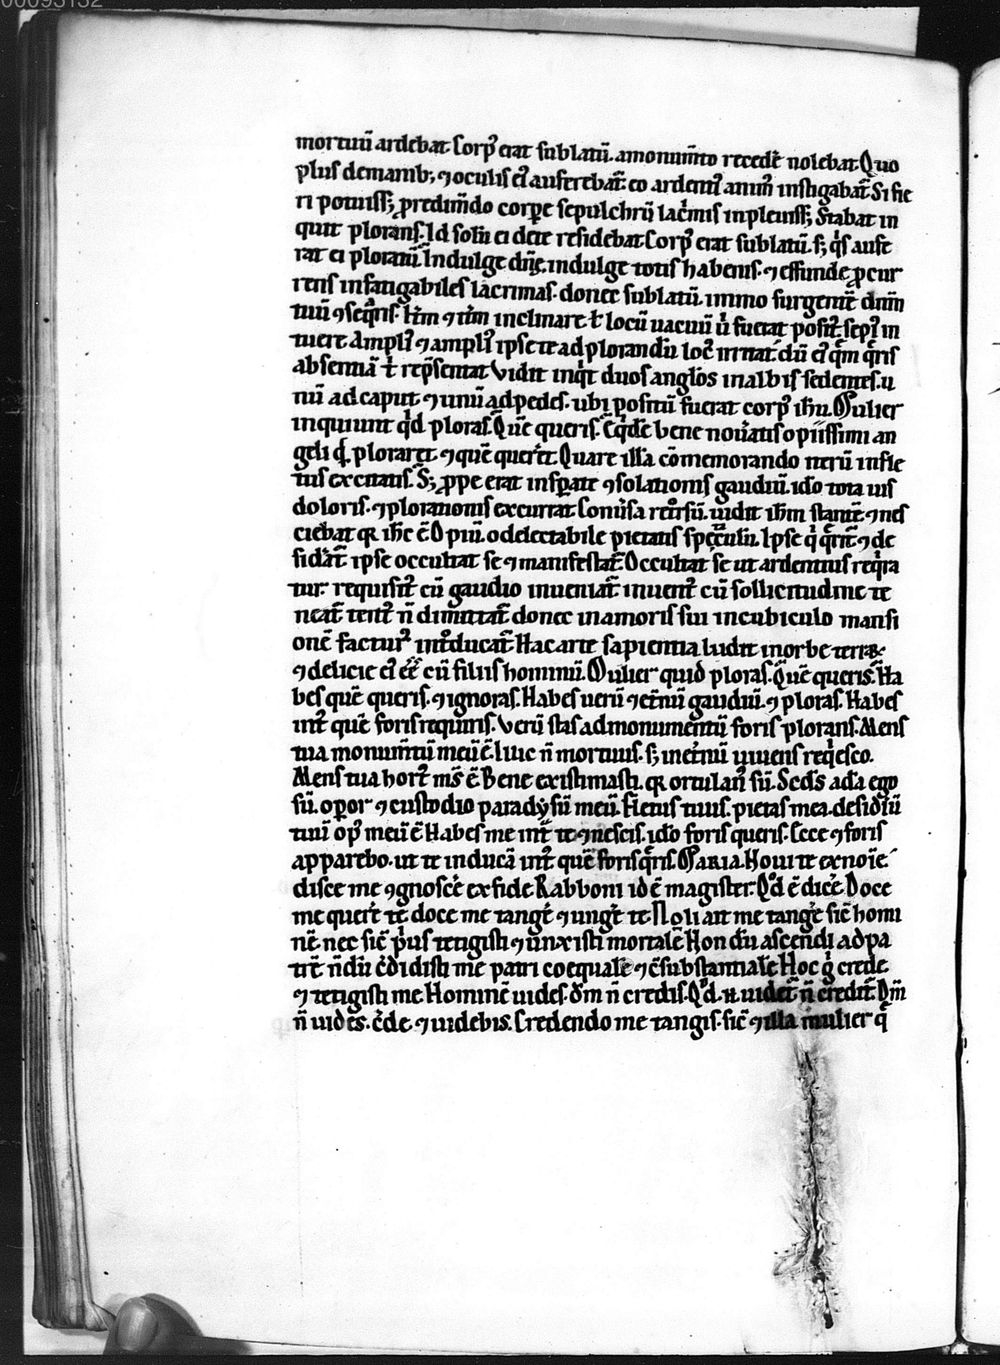 00093132
mortuū ardebat Corpꝰ erat sublatū. a monumto recedē nolebat Quo
plus de manibꝫ ⁊ oculis eiꝰ auferebat̄ eo ardentiꝰ animū instigabat̄ Si fie
ri potuissꝫ p̱redim̄do corpꝰe sepulchrū lac̄mis inplevissꝫ Stabat in
quit plorans. Id solū ei dere residebat Corpꝰ erat sublatū. sꝫ qͥs aufe
rat ei ploratū Indulge dn̄e. indulge totis habenis. ⁊ effunde ꝓcur
rens infatigabiles lacrimas. donec sublatū immo surgentē dn̄m
tuū ꝯseqͣris. ⁊ inclinare ł locū vacuū
tuere Ampliꝰ ⁊ ampliꝰ ipse te ad plorandū locꝰ irritat. dū eiꝰ qͣris
absentiā ł rep̄sentat Vidit inqͥt duos angl̄os in albis sedentes. u
nū ad caput ⁊ unū ad pedes. ubi positū fuerat corpꝰ ih̄u. Mulier
inquiunt qͥd ploras. Quē queris. bene novatis o piissimi an
geli qͥ ploraret ⁊ quē querēt Quare illa cōmemorando iterū in fle
tus excitatis. Sꝫ ꝓpe erat insꝑate ꝯsolationis gaudiū. ido tota vis
doloris. ⁊ plorationis excurrat Conv̄sa retrorsū. vidit ih̄m stantē ⁊ nes
ciebat qꝛ ih̄c ē O piū. o delectabile pietatis spectaculū. Ipse qͥ qͣrit̄ ⁊ de
sidāt̄ ipse occultat se ⁊ manifestat̄. Occultat se ut ardentius reqͥra
tur. requisitꝰ cū gaudio inveniat̄ inventꝰ cū sollicitudine te
neat̄ tentꝰ n̄ dimittat̄ donec in amoris sui in cubiculo mansi
onē facturꝰ introducat̄ Hac arte sapientia ludit in orbe terraꝝ
⁊ delicie eiꝰ eē cū filiis hominū. Mulier quid ploras. Quē queris. Ha
bes quē queris. ⁊ ignoras. Habes verū ⁊ et̄nū gaudiū. ⁊ ploras. Habes
int̄ quē foris requiris. Verū stas ad monumentū foris plorans. Mens
tua monumtū meū ē. huc n̄ mortuus. sꝫ inet̄nū vivens reqͥesco.
Mens tua hortꝰ mꝰs ē Bene existimasti. qꝛ ortulanꝰ sū. Secd̄s ada ego
sū. oꝑor ⁊ custodio paradysū meū. Fletus tuus. pietas mea. desidiū
tuū opꝰ meū ē Habes me int̄ te ⁊ nescis. ido foris queris. Ecce ⁊ foris
apparebo. ut te inducā int̄ quē foris qͣris. Maria. Novi te ex noīe
disce me ꝯgnoscē ex fide Rabboni id ē magister. Qd̄ ē dicē Doce
me querē te. doce me tangē ⁊ ungē te Noli ait me tangē sic̄ homi
nē. nec sic̄ pͥus tetigisti ⁊ unxisti mortalē Nondū ascendi ad pa
trē n̄dū c̄didisti me patri coequalē ⁊ ꝯsubstantialē Hoc gͦ crede.
⁊ tetigisti me Hominē vides. dm̄ n̄ credis. Qd̄. n. videt̄ n̄ credit̄ Dm̄
n̄ vides. c̄de. ⁊ videbis. Credendo me tangis. sic̄ ⁊ illa mulier qͥ